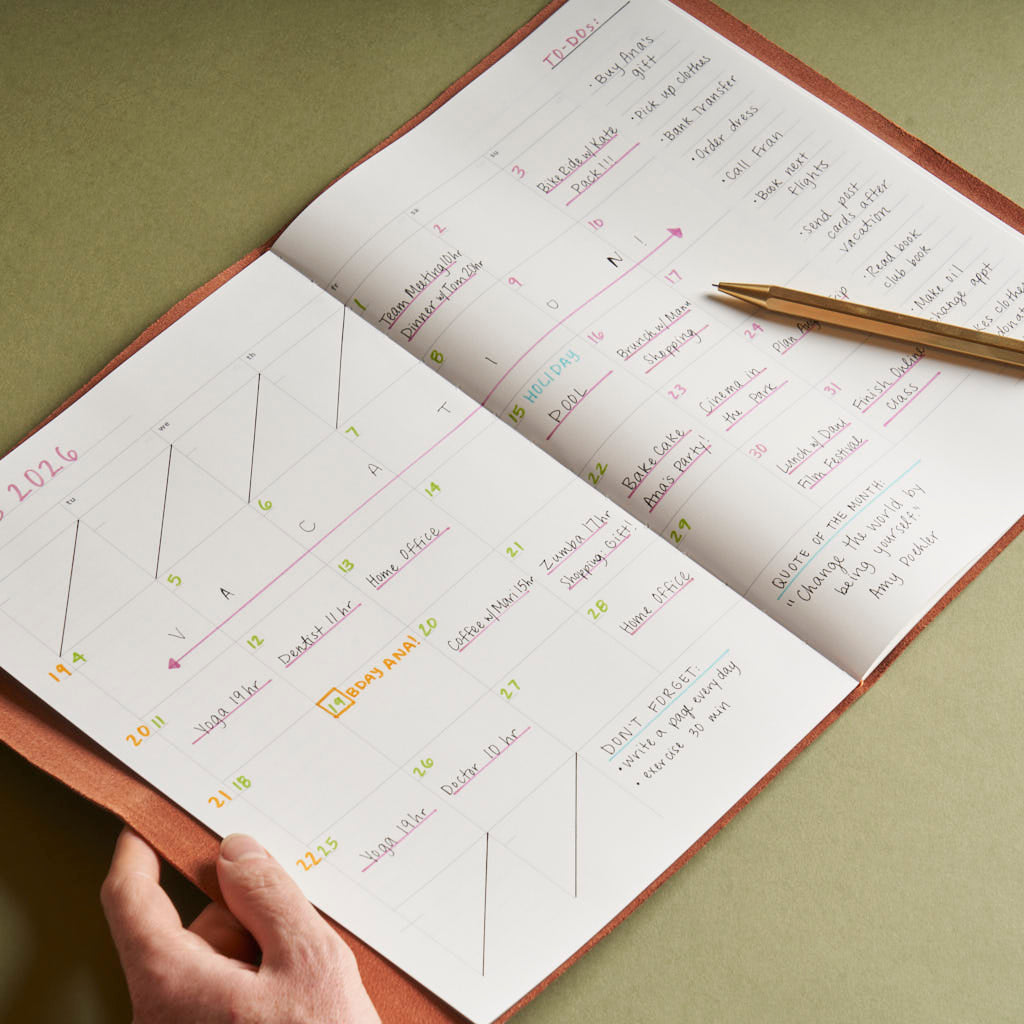 2026
tu
we
th
fr
sa
su
1
Team Meeting 10hr
Dinner w/ Tom 20hr
2
3
Bike Ride w/ Kate
Pack!!!
19 4
5
6
7
8
9
10
VACATION!
20 11
Yoga 19hr
12
Dentist 11hr
13
Home Office
14
15 HOLIDAY
POOL
16
Brunch w/ Manu
Shopping
17
21 18
19 BDAY ANA!
20
Coffee w/ Mari 15hr
21
Zumba 17hr
Shopping: Gift!
22
Bake Cake
Ana's Party!
23
Cinema in
the Park
24
Plan
22 25
Yoga 19hr
26
Doctor 10 hr
27
28
Home Office
29
30
Lunch w/ Dani
Film Festival
31
Finish Online
class
DON'T FORGET:
• write a page every day
• exercise 30 min
TO-DOs:
• Buy Ana's
gift
• Pick up clothes
• Bank Transfer
• Order dress
• Call Fran
• Book next
flights
• Send post
cards after
vacation
• Read book
club book
• Make oil
change appt
QUOTE OF THE MONTH:
"Change the world by
being yourself."
Amy Poehler